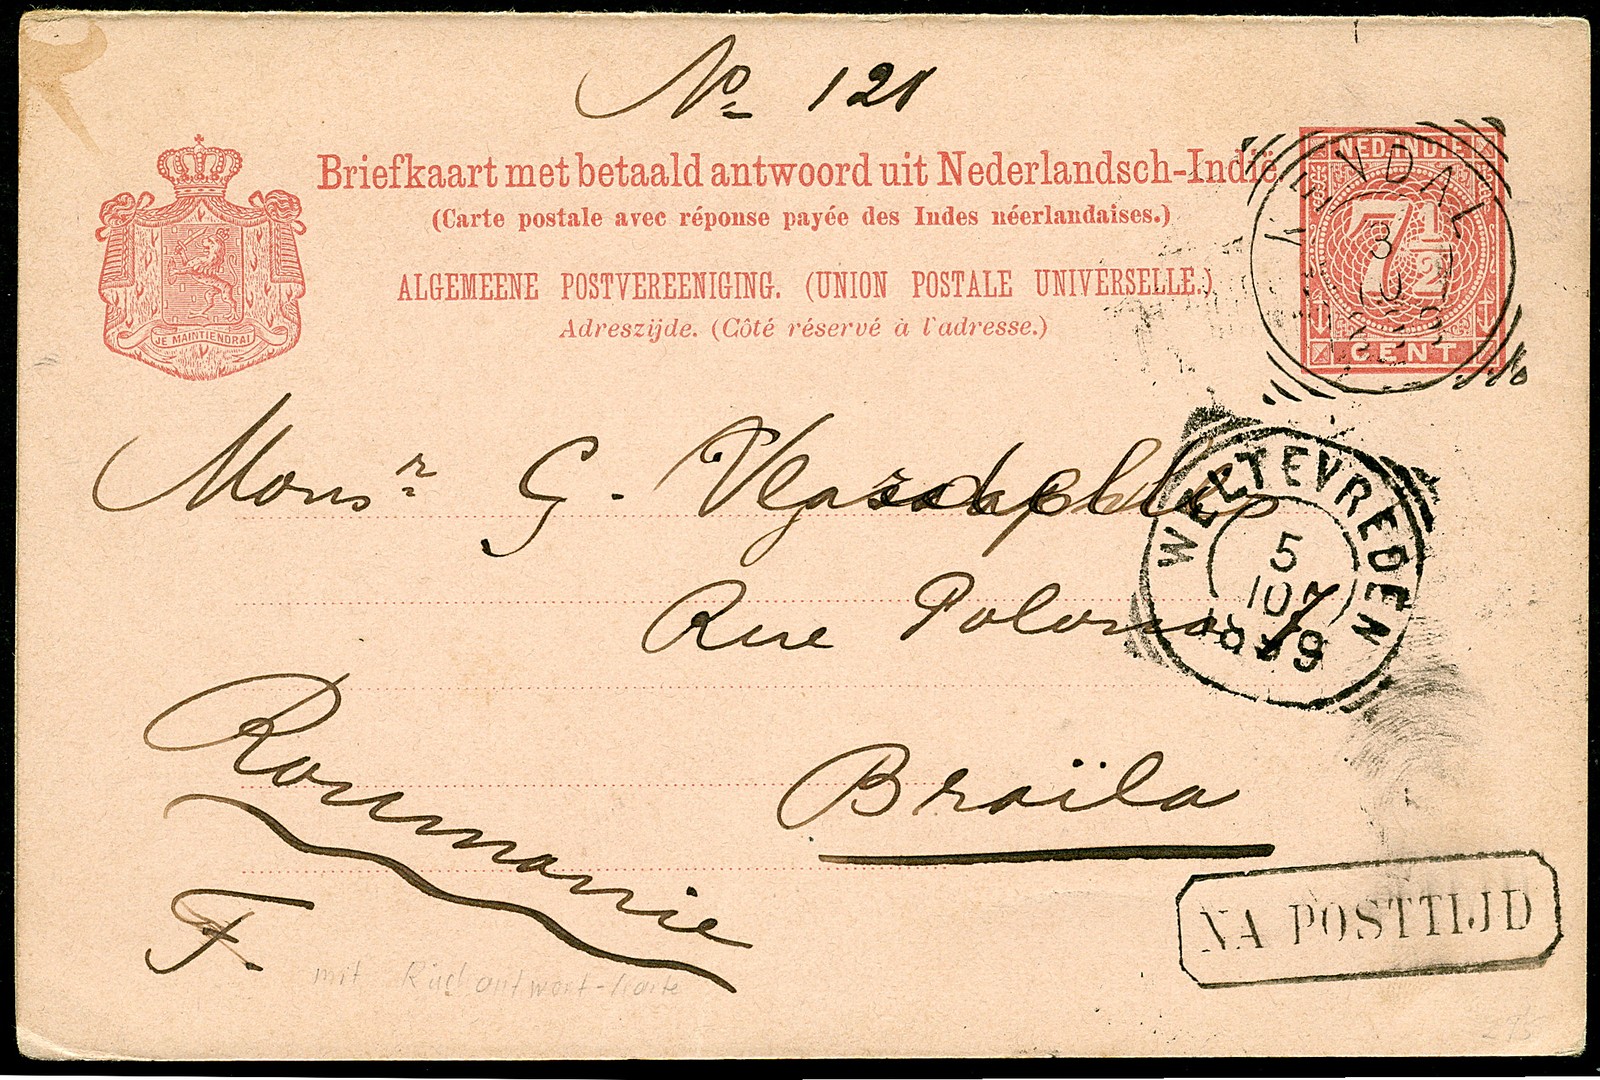 No 121
Briefkaart met betaald antwoord uit Nederlandsch-Indië
(Carte postale avec réponse payée des Indes néerlandaises.)
ALGEMEENE POSTVEREENIGING. (UNION POSTALE UNIVERSELLE.)
Adreszijde. (Côté réservé à l'adresse.)
JE MAINTIENDRAI
NED-INDIE
7 1/2
CENT
KENDAL
3
10
WELTEVREDEN
5
10
1899
Monsr G.
Rue
Braïla
Roumanie
F.
NA POSTTIJD
mit Rückantwort-Karte